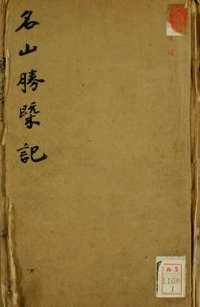 名山勝槩記
1